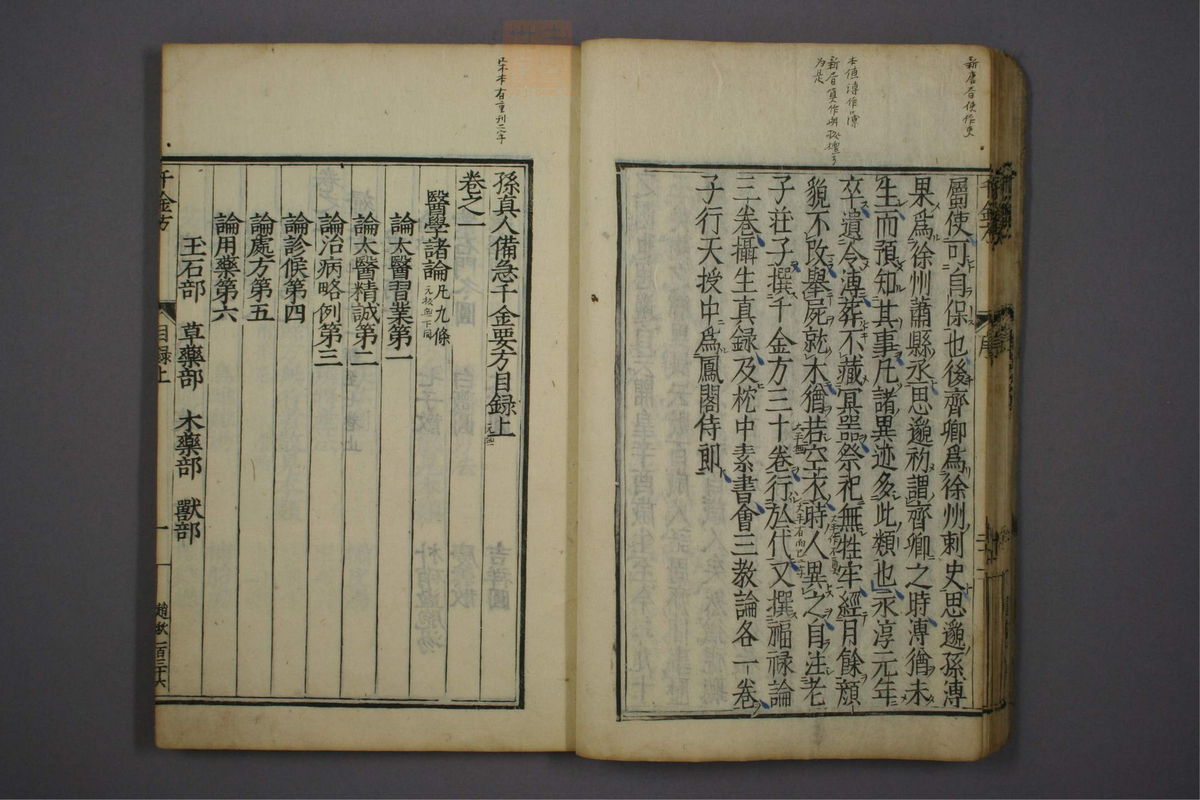 新唐書使作吏
本値溥作心溥
新唐
為是
屬吏可自保也後齊卿爲徐州刺史思邈孫溥
果爲徐州蕭縣丞思邈初謂齊卿之時溥猶未
生而預知其事凡諸異迹多此類也永淳元年
卒遺令薄葬不藏冥器祭祀無牲牢經月餘顏
貌不改舉屍就木猶若空衣時人異之自注老
子莊子撰千金方三十卷行於代又撰福禄論
三卷攝生真録及枕中素書會三教論各一卷
子行天授中爲鳳閣侍郎
千金方
序
宋本有重刊二字
孫真人備急千金要方目録上
卷之一
醫學諸論凡九條
論太醫習業第一
論太醫精誠第二
論治病略例第三
論診候第四
論處方第五
論用藥第六
玉石部 草藥部 木藥部 獸部
千金方
目録上
一